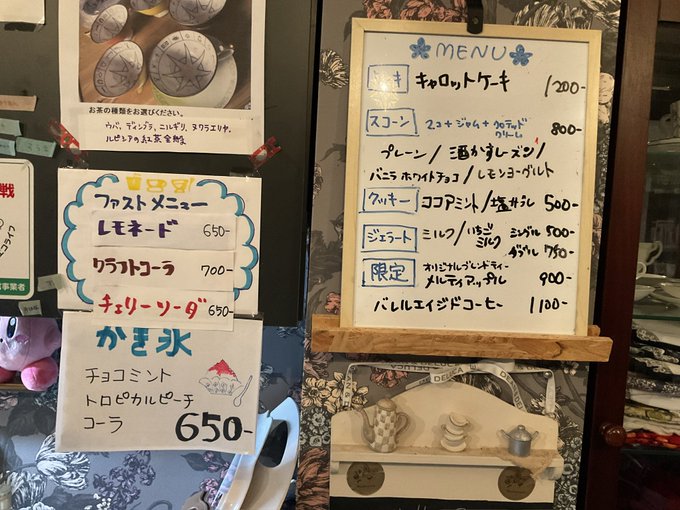 お茶の種類をお選びください。
ウバ、ディンブラ、ニルギリ、ヌワラエリヤ、
ルピシアの紅茶全般
ファストメニュー
レモネード 650-
クラフトコーラ 700-
チェリーソーダ 650-
かき氷
チョコミント
トロピカルピーチ
コーラ 650-
MENU
キャロットケーキ 1200-
スコーン 2コ+ジャム+クロテッドクリーム 800-
プレーン/酒かすレーズン/
バニラホワイトチョコ/レモンヨーグルト
クッキー ココアミント/塩サブレ 500-
ジェラート ミルク/いちごミルク シングル 500-
ダブル 750-
限定 オリジナルブレンドティー
メルティアップル 900-
バレルエイジドコーヒー 1100-
DELUCA
事業者